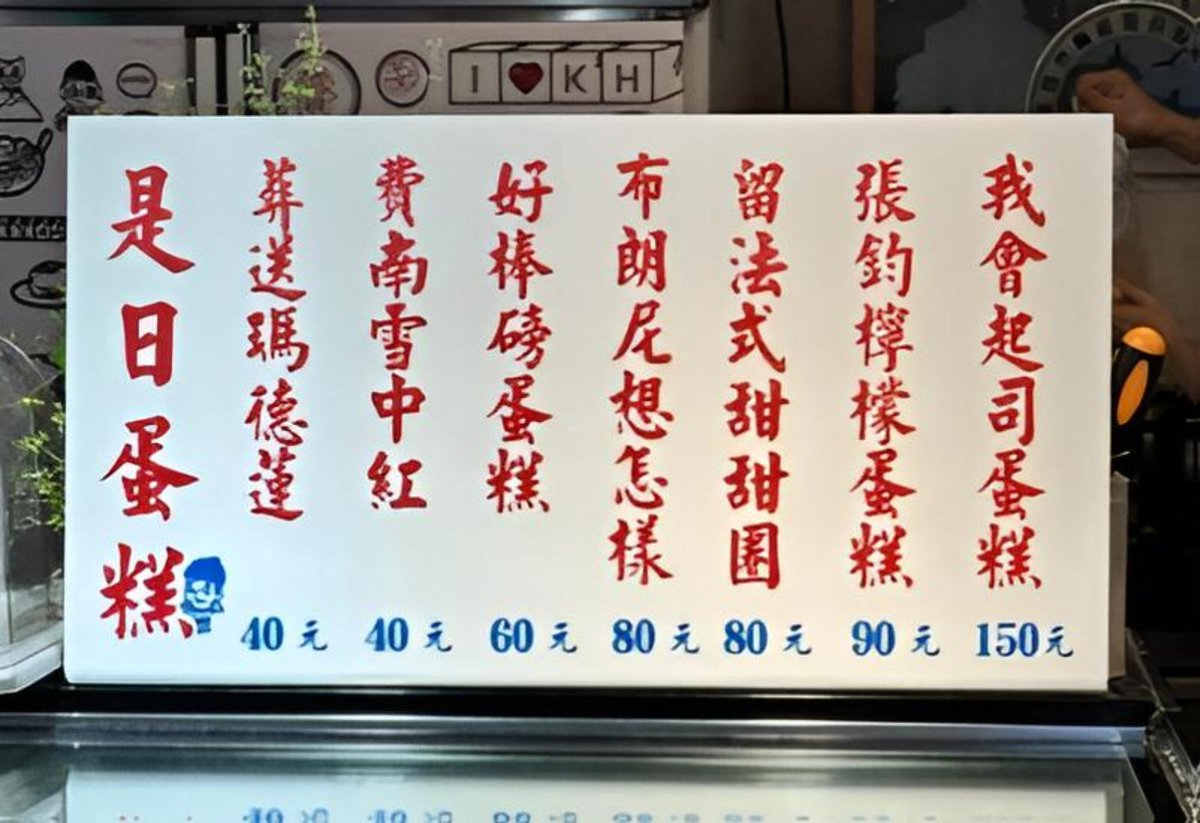 I ♥ K H
是日蛋糕
葬送瑪德蓮
40元
費南雪中紅
40元
好棒磅蛋糕
60元
布朗尼想怎樣
80元
留法式甜甜圈
80元
張鈞檸檬蛋糕
90元
我會起司蛋糕
150元